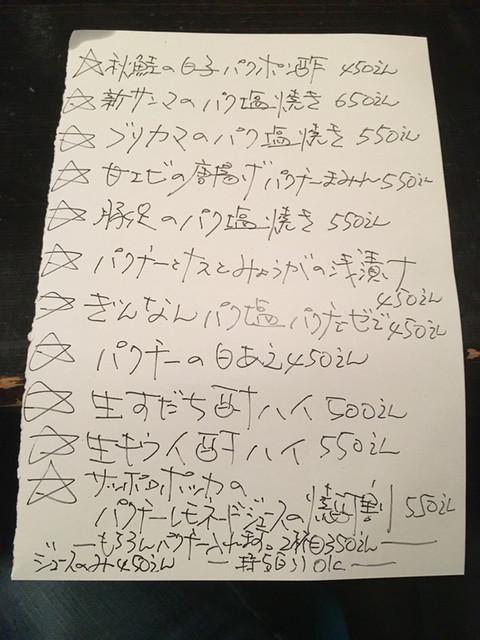 ☆秋鮭の白子パクポン酢 450えん
☆新サンマのパク塩焼き 650えん
☆ブリカマのパク塩焼き 550えん
☆甘エビの唐揚げパクチーまみれ550えん
☆豚足のパク塩焼き 550えん
☆パクチーとナスとみょうがの浅漬け
450えん
☆ぎんなんパク塩パクチーとゼで450えん
☆パクチーの白あえ450えん
☆生すだち酎ハイ 500えん
☆生キウイ酎ハイ 550えん
☆サッポロポッカの
パクチーレモネードジュースの 550えん
もちろんパクチー入れます。2杯目350えん
ジュースのみ450えん OK